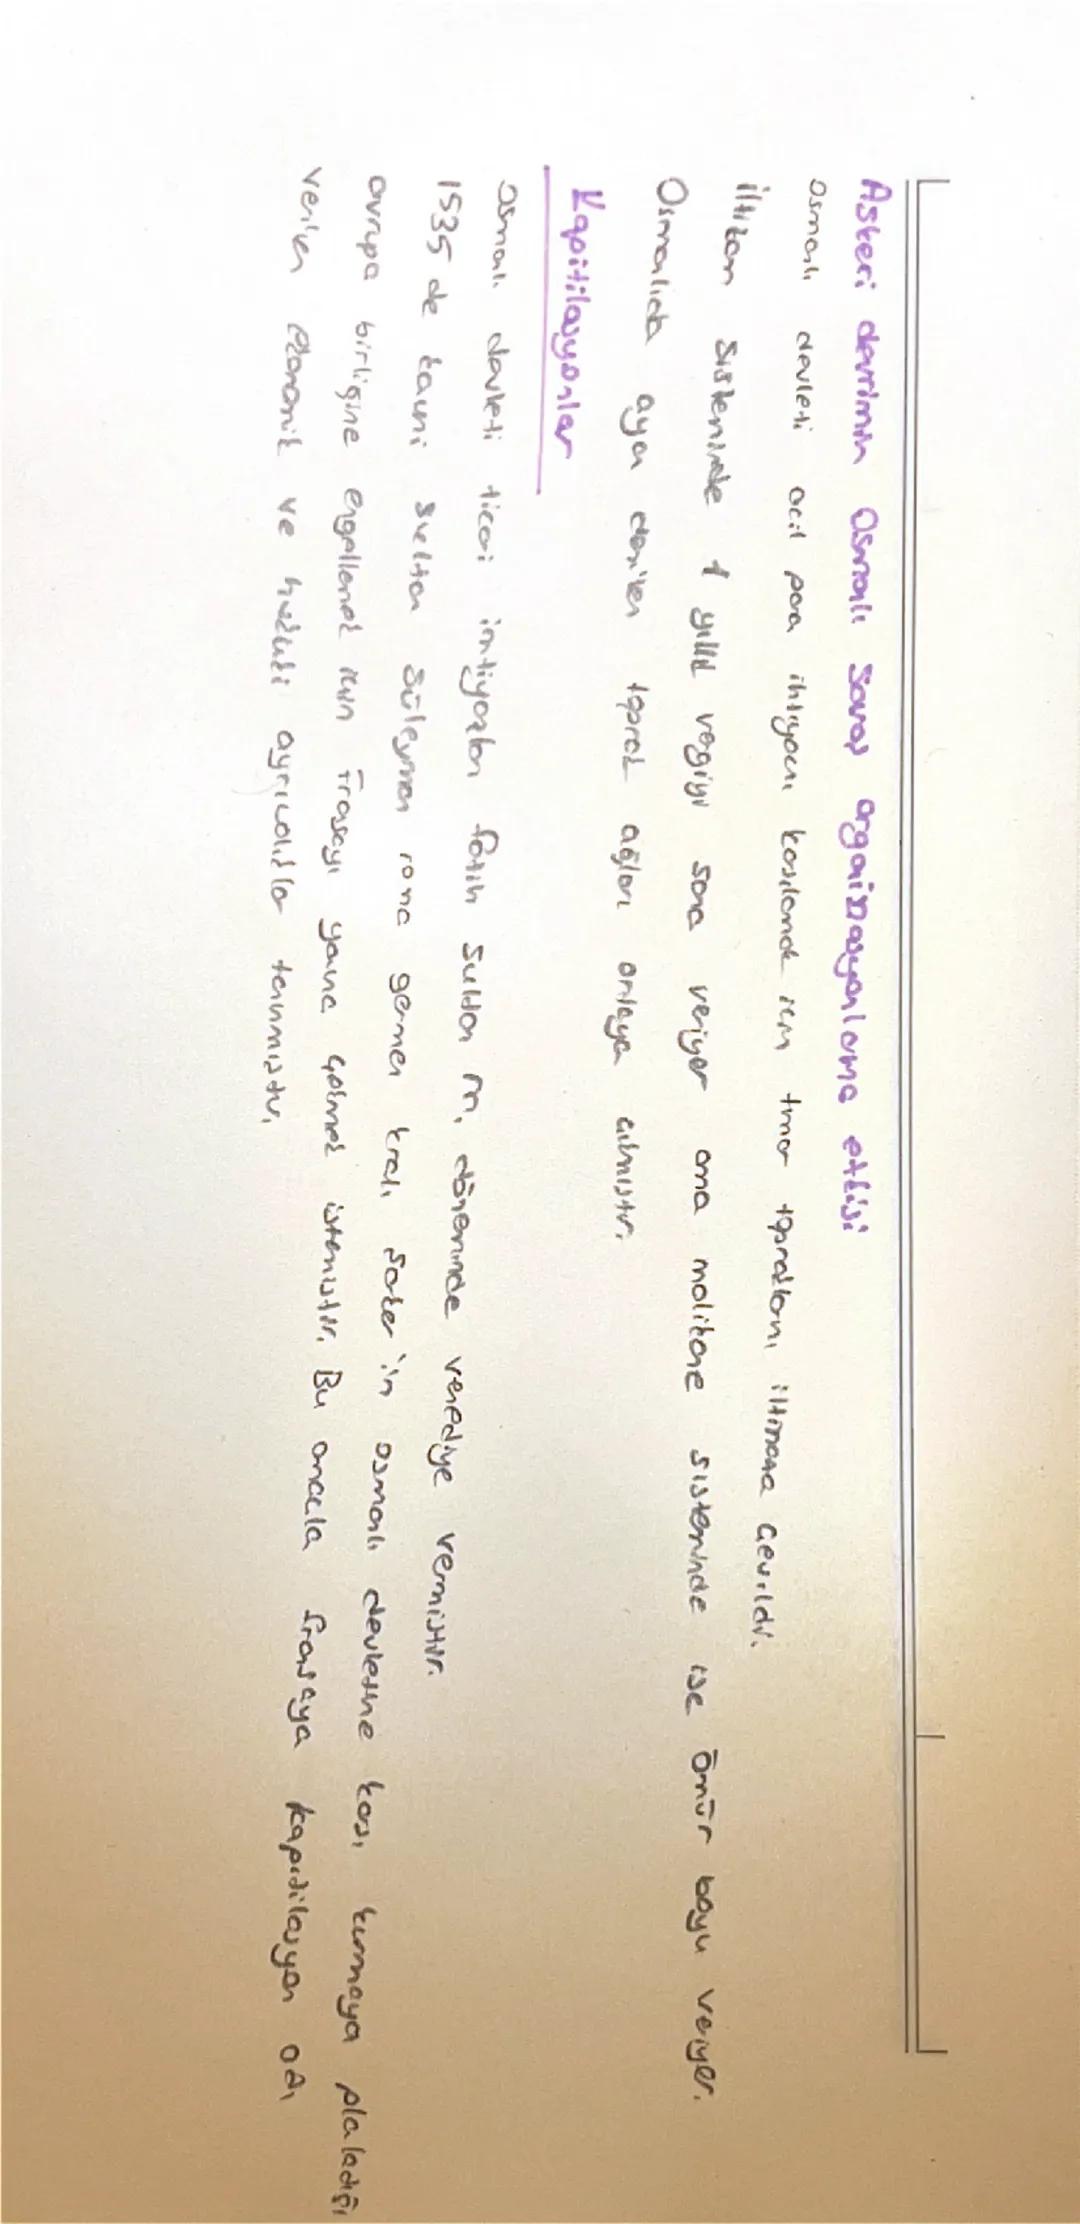 Askeri devrimin Osmanlı Savaş orgainzasyonlama etkisi
Osmanlı devleti acil para ihtiyacını karşılamak için tımar topraklarını iltimaza çevrildi.
iltizam sisteminde 1 yıllık vergiyi sana veriyor ama malikane sisteminde ise ömür boyu veriyor.
Osmanlıda ayan denilen toprak ağları ortaya çıkmıştır.
Kapitilasyonlar
Osmanlı devleti ticari imtiyazları fatih Sultan M. döneminde venediye vermiştir.
1535 de kanuni sultan Süleyman roma germen kralı Şarken'in osmanlı devletine karşı kurmaya pladığı
avrupa birligine engellemek için Fransayı yanına çekmek istemiştir. Bu amaçla fransaya kapitilasyon adı
verilen ekonomik ve hukuki ayrıcalıklar tanımıştır.